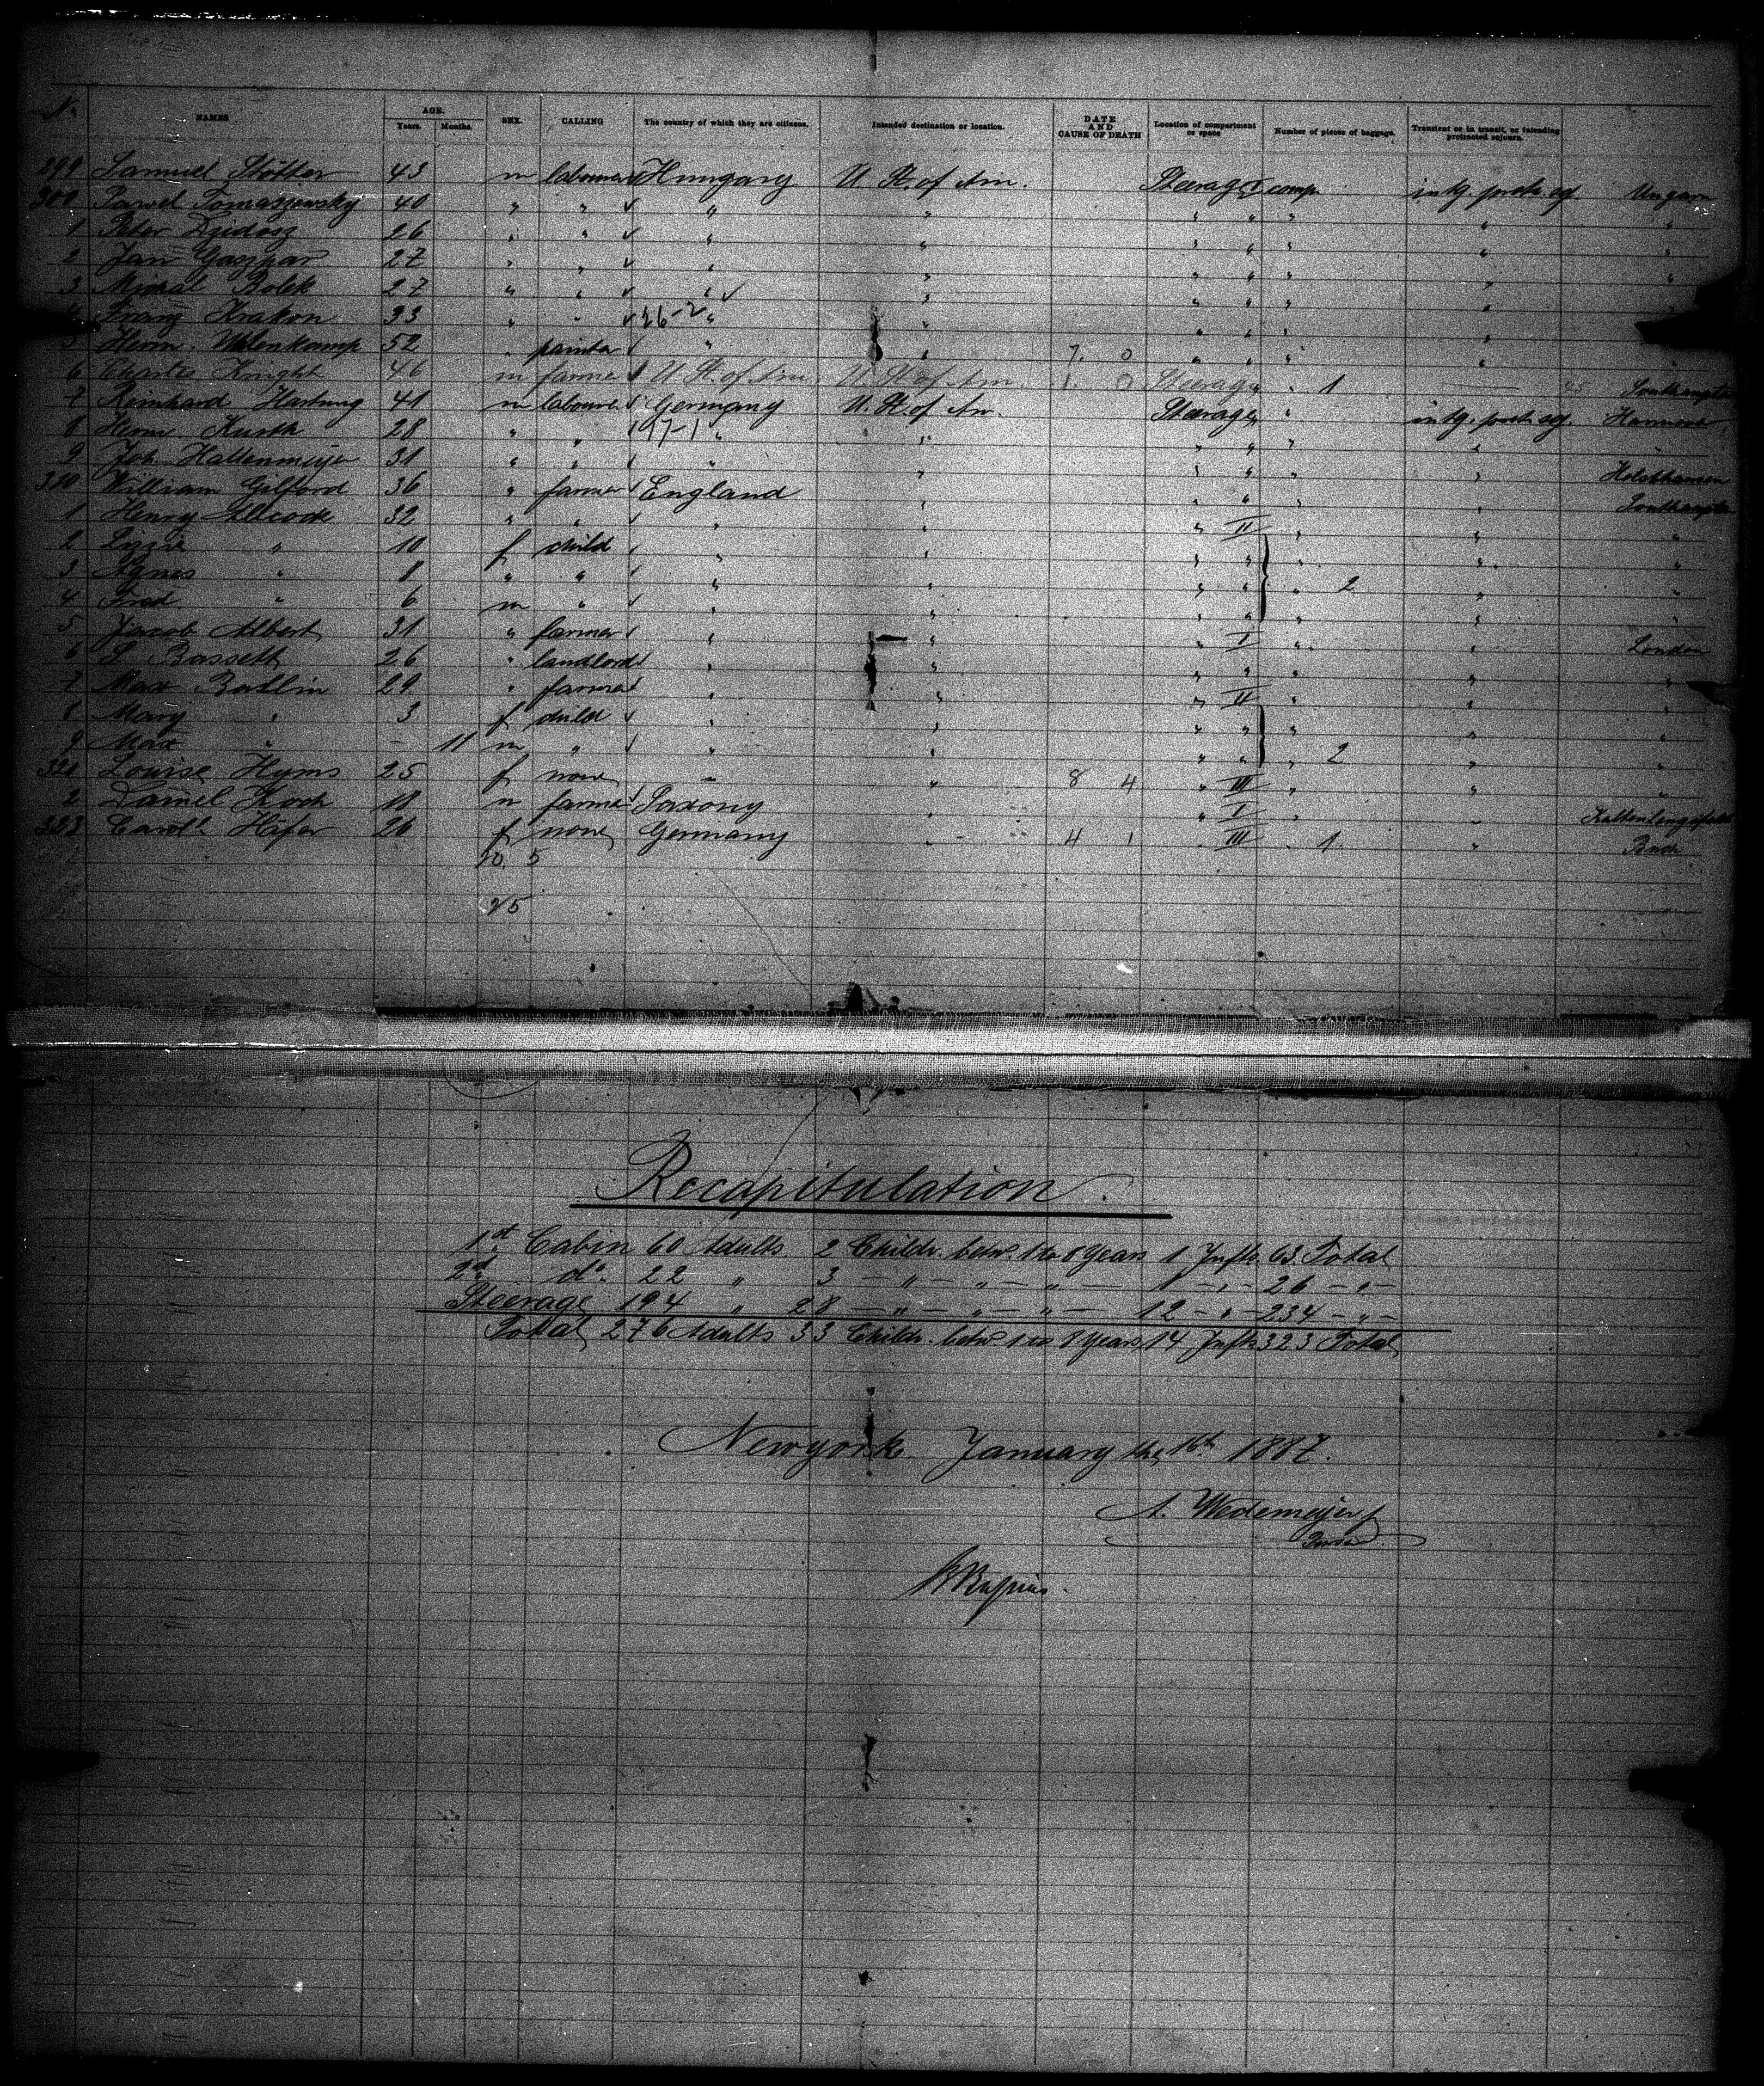 No. NAMES AGE. Years. Months. SEX. CALLING The country of which they are citizens. Intended destination or location. DATE AND CAUSE OF DEATH Location of compartment or space Number of pieces of baggage. Transient or in transit, or intending protracted sojourn.
299 Samuel Stötter 43 m labourer Hungary U. St. of Am. Steerage I comp. intg. protr. sej. Ungarn
300 Pawel Tomaszewsky 40 " " " " " " " " "
1 Peter Dzidosz 26 " " " " " " " " "
2 Jan Gaszpar 27 " " " " " " " " "
3 Michal Bolek 27 " " " " " " " "
4 Franz Krakon 33 " " 26-2 " " " " " "
5 Herm. Uhlenkamp 52 " painter " " 7. 0 " " " " "
6 Charles Knight 46 m farmer U St. of Am U. St. of Am. 1. 0 Steerage " " 1 45 Southampton
7 Reinhard Hartung 41 m labourer Germany U. St. of Am. Steerage " " intg. protr. sej. Hannover
8 Herm. Kurth 28 " " 97-1 " " " " " " "
9 Joh. Haltenmeyer 31 " " " " " " " " Holsthausen
310 William Gilford 36 " farmer England " " " " " Southampton
1 Henry Allcock 32 " " " " " II " " "
2 Lizzie " 10 f child " " " " " " "
3 Agnes " 8 " " " " " " " 2 " "
4 Fred " 6 m " " " " " " " "
5 Jacob Albert 31 " farmer " " " I " " London
6 S Bassett 26 " landlord " " " " " " "
7 Max Batlin 29 " farmer " " " II " " "
8 Mary " 3 f child " " " " " " "
9 Max " - 11 m " " " " " " 2 " "
320 Louise Hyms 25 f none " " 8 4 " III " " "
2 Daniel Koch 18 m farmer Saxony " " I " " Kaltenlengsfeld
323 Carol. Häfer 26 f none Germany " 4 1 " III " 1. " Buch
20 5
25
Recapitulation.
1st Cabin 60 Adults 2 Childr. betw. 1 to 8 Years 1 Inft. 63. Total
2d do. 22 " 3 — " — " — " — 1 - " - 26 - " -
Steerage 194 " 28 — " — " — " — 12 - " - 234 - " -
Total 276 Adults 33 Childr. betw 1 to 8 Years 14 Inft 323 Total
Newyork January the 16th 1887.
A. Wedemeyer
Purser